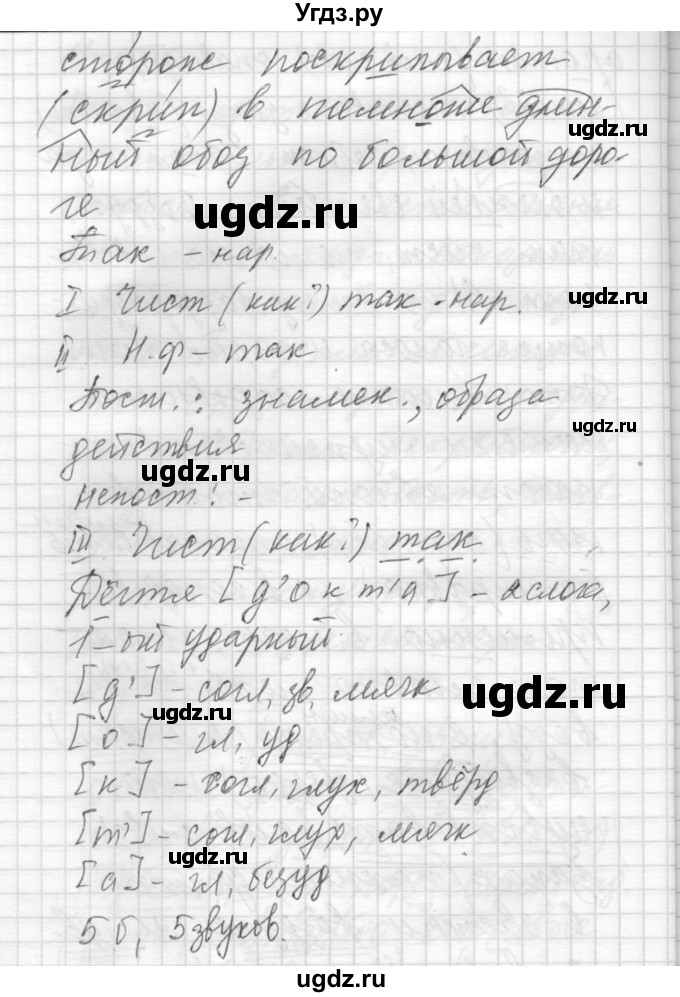 Угдз.ру
стороне поскрипывает
(скрип) в темноте длин-
ный обоз по большой доро-
ге
ugdz.ru
ugdz.ru
Так - нар.
I Чист (как?) так - нар.
ugdz.ru
II Н.ф - так
Пост.: знамен., образа
ugdz.ru
действия
ugdz.ru
Непост.: -
III Чист (как?) так.
ugdz.ru
Дёгтя [д'о к т'а] - 2 слога,
1-ый ударный.
[д'] - согл, зв, мягк
ugdz.ru
ugdz.ru
[о] - гл, уд
[к] - согл, глух, твёрд
[т'] - согл, глух, мягк
ugdz.ru
[а] - гл, безуд
5 б, 5 звуков.
ugdz.ru